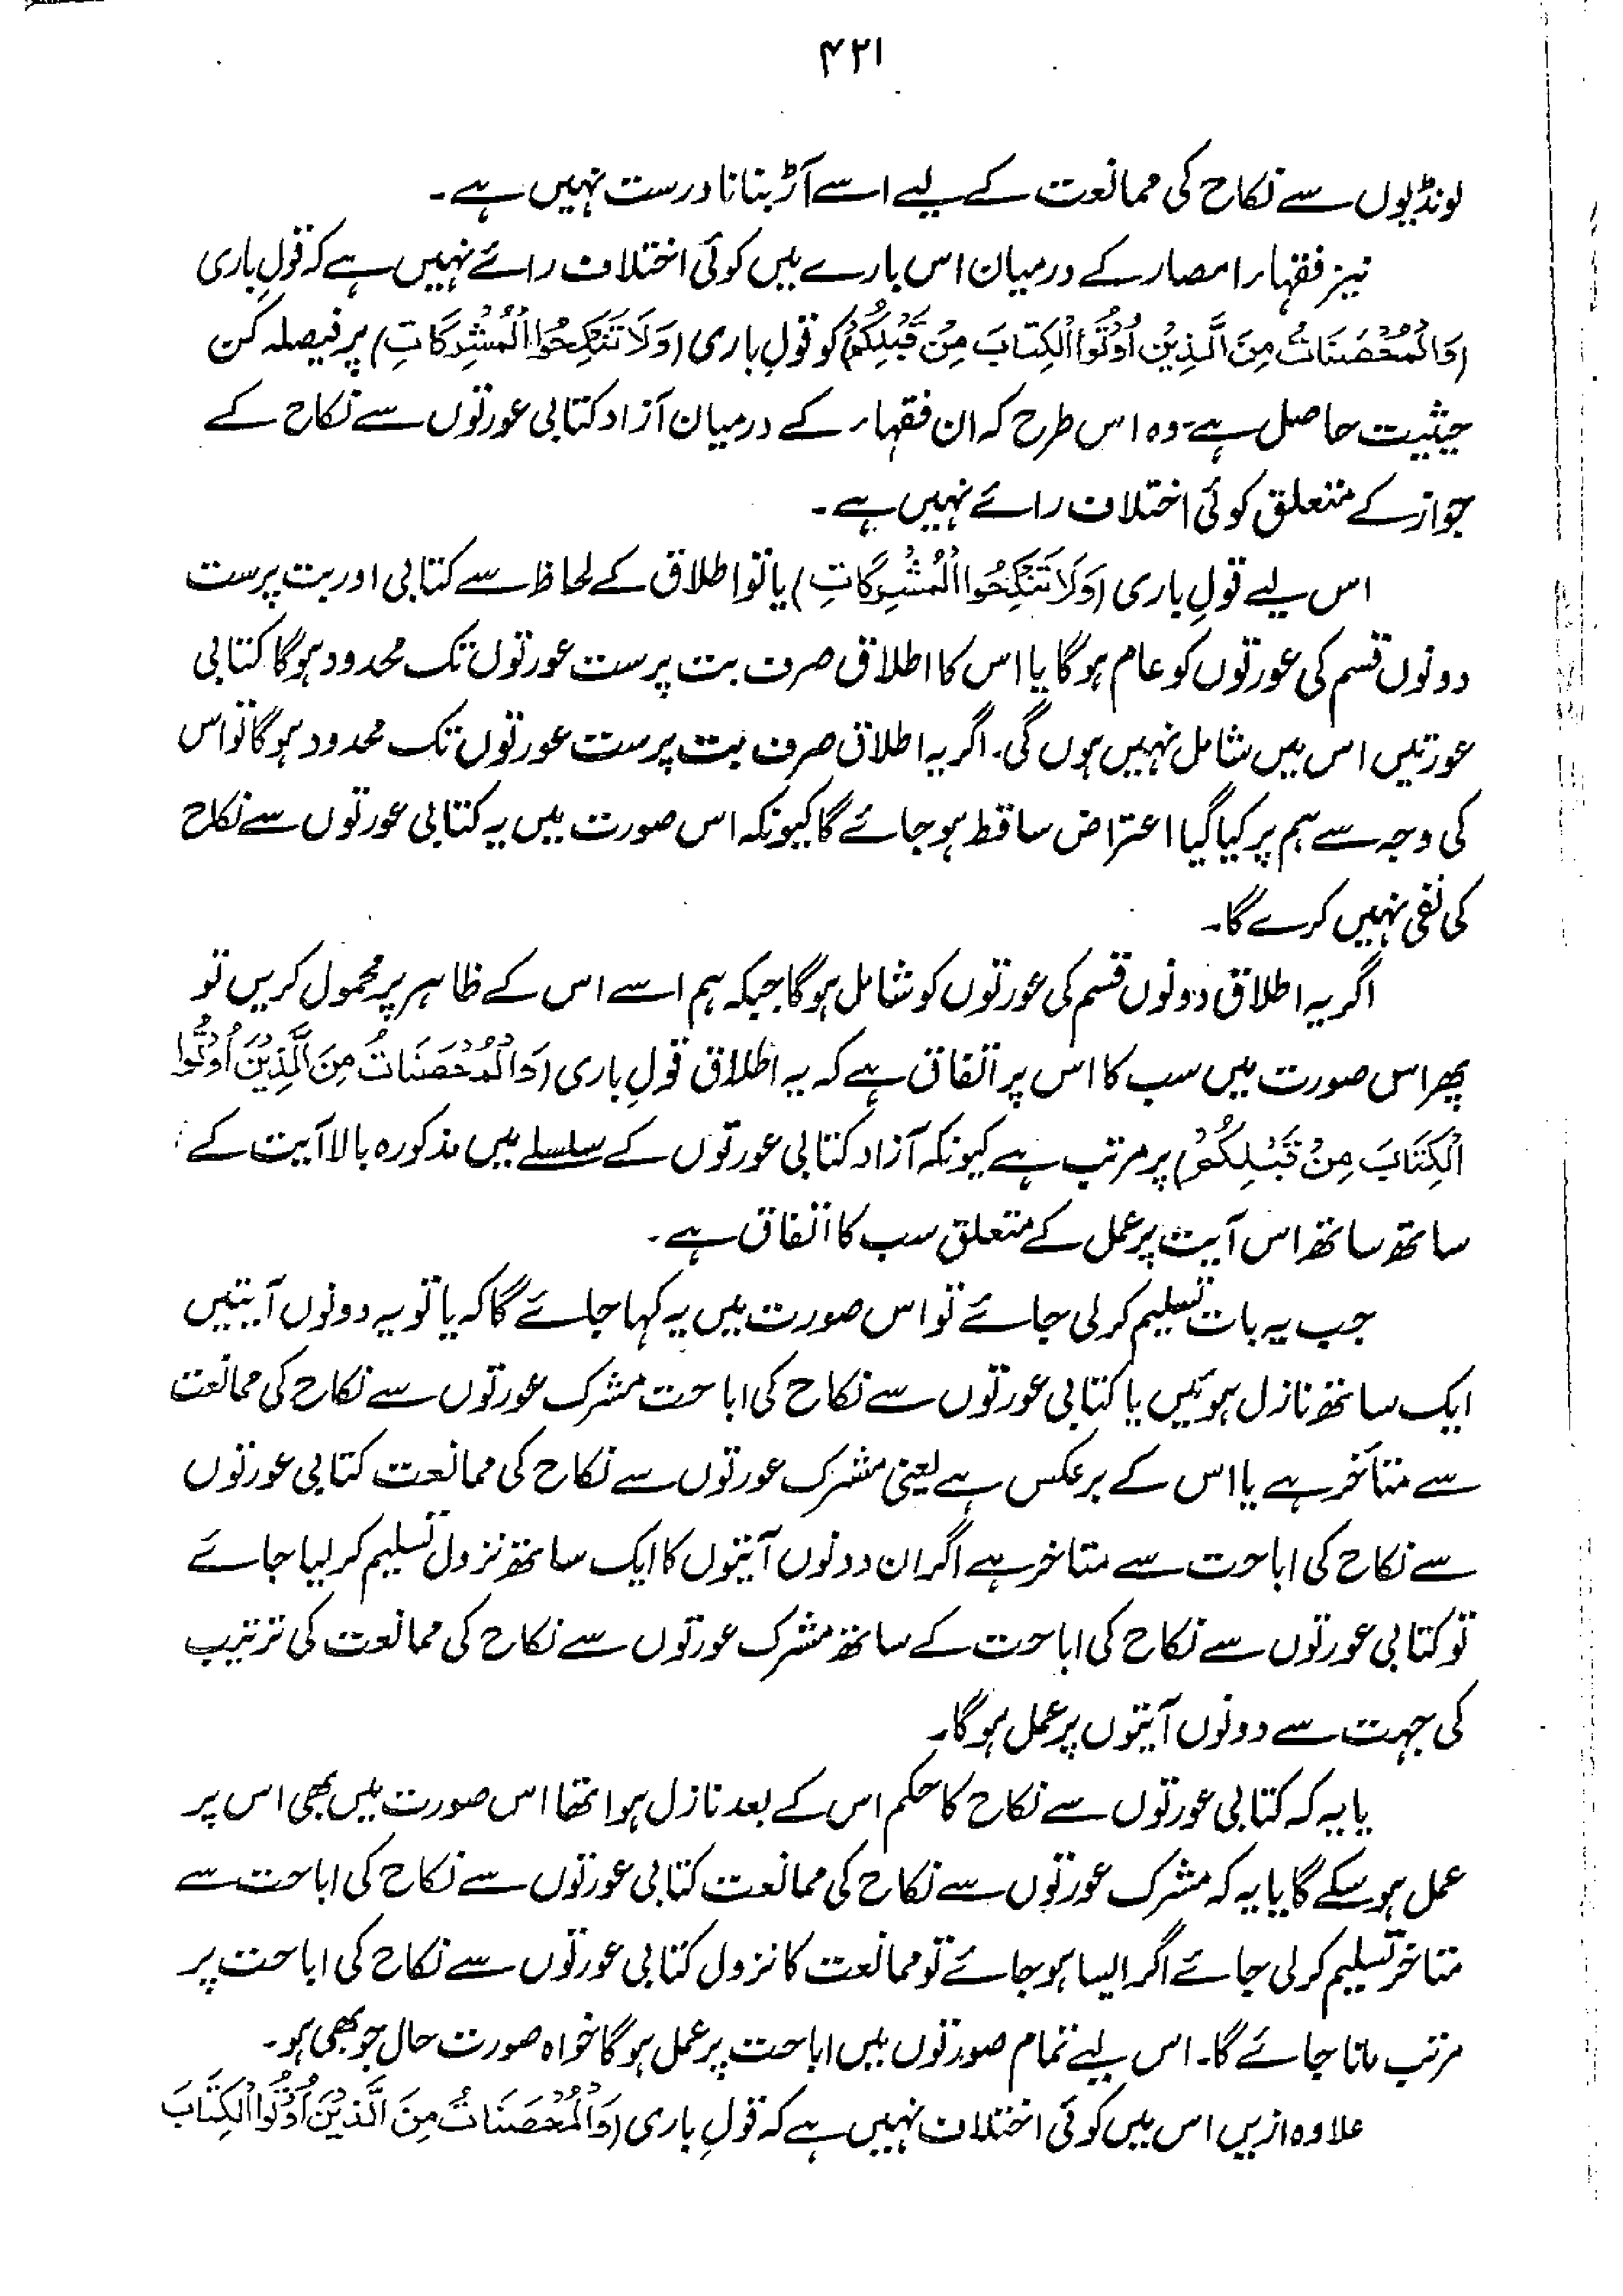 ۴۲۱
لونڈیوں سے نکاح کی ممانعت کے لیے اسے آڑ بنانا درست نہیں ہے۔
نیز فقہاء امصار کے درمیان اس بارے میں کوئی اختلاف رائے نہیں ہے کہ قولِ باری
(وَالْمُحْصَنَاتُ مِنَ الَّذِيْنَ اُوْتُوا الْكِتَابَ مِنْ قَبْلِكُمْ) کو قولِ باری (وَلَا تَنْكِحُوا الْمُشْرِكَاتِ) پر فیصلہ کن
حیثیت حاصل ہے۔ وہ اس طرح کہ ان فقہاء کے درمیان آزاد کتابی عورتوں سے نکاح کے
جواز کے متعلق کوئی اختلاف رائے نہیں ہے۔
اس لیے قولِ باری (وَلَا تَنْكِحُوا الْمُشْرِكَاتِ) یا تو اطلاق کے لحاظ سے کتابی اور بت پرست
دونوں قسم کی عورتوں کو عام ہوگا یا اس کا اطلاق صرف بت پرست عورتوں تک محدود ہوگا کتابی
عورتیں اس میں شامل نہیں ہوں گی۔ اگر یہ اطلاق صرف بت پرست عورتوں تک محدود ہوگا تو اس
کی وجہ سے ہم پر کیا گیا اعتراض ساقط ہو جائے گا کیونکہ اس صورت میں یہ کتابی عورتوں سے نکاح
کی نفی نہیں کرے گا۔
اگر یہ اطلاق دونوں قسم کی عورتوں کو شامل ہوگا جبکہ ہم اسے اس کے ظاہر پر محمول کریں تو
پھر اس صورت میں سب کا اس پر اتفاق ہے کہ یہ اطلاق قولِ باری (وَالْمُحْصَنَاتُ مِنَ الَّذِيْنَ اُوْتُوا
الْكِتَابَ مِنْ قَبْلِكُمْ) پر مرتب ہے کیونکہ آزاد کتابی عورتوں کے سلسلے میں مذکورہ بالا آیت کے
ساتھ ساتھ اس آیت پر عمل کے متعلق سب کا اتفاق ہے۔
جب یہ بات تسلیم کر لی جائے تو اس صورت میں یہ کہا جائے گا کہ یا تو یہ دونوں آیتیں
ایک ساتھ نازل ہوئیں یا کتابی عورتوں سے نکاح کی اباحت مشرک عورتوں سے نکاح کی ممانعت
سے متأخر ہے یا اس کے برعکس ہے یعنی مشرک عورتوں سے نکاح کی ممانعت کتابی عورتوں
سے نکاح کی اباحت سے متاخر ہے اگر ان دونوں آیتوں کا ایک ساتھ نزول تسلیم کر لیا جائے
تو کتابی عورتوں سے نکاح کی اباحت کے ساتھ مشرک عورتوں سے نکاح کی ممانعت کی ترتیب
کی جہت سے دونوں آیتوں پر عمل ہوگا۔
یا یہ کہ کتابی عورتوں سے نکاح کا حکم اس کے بعد نازل ہوا تھا اس صورت میں بھی اس پر
عمل ہو سکے گا یا یہ کہ مشرک عورتوں سے نکاح کی ممانعت کتابی عورتوں سے نکاح کی اباحت سے
متاخر تسلیم کر لی جائے اگر ایسا ہو جائے تو ممانعت کا نزول کتابی عورتوں سے نکاح کی اباحت پر
مرتب مانا جائے گا۔ اس لیے تمام صورتوں میں اباحت پر عمل ہوگا خواہ صورت حال جو بھی ہو۔
علاوہ ازیں اس میں کوئی اختلاف نہیں ہے کہ قولِ باری (وَالْمُحْصَنَاتُ مِنَ الَّذِيْنَ اُوْتُوا الْكِتَابَ